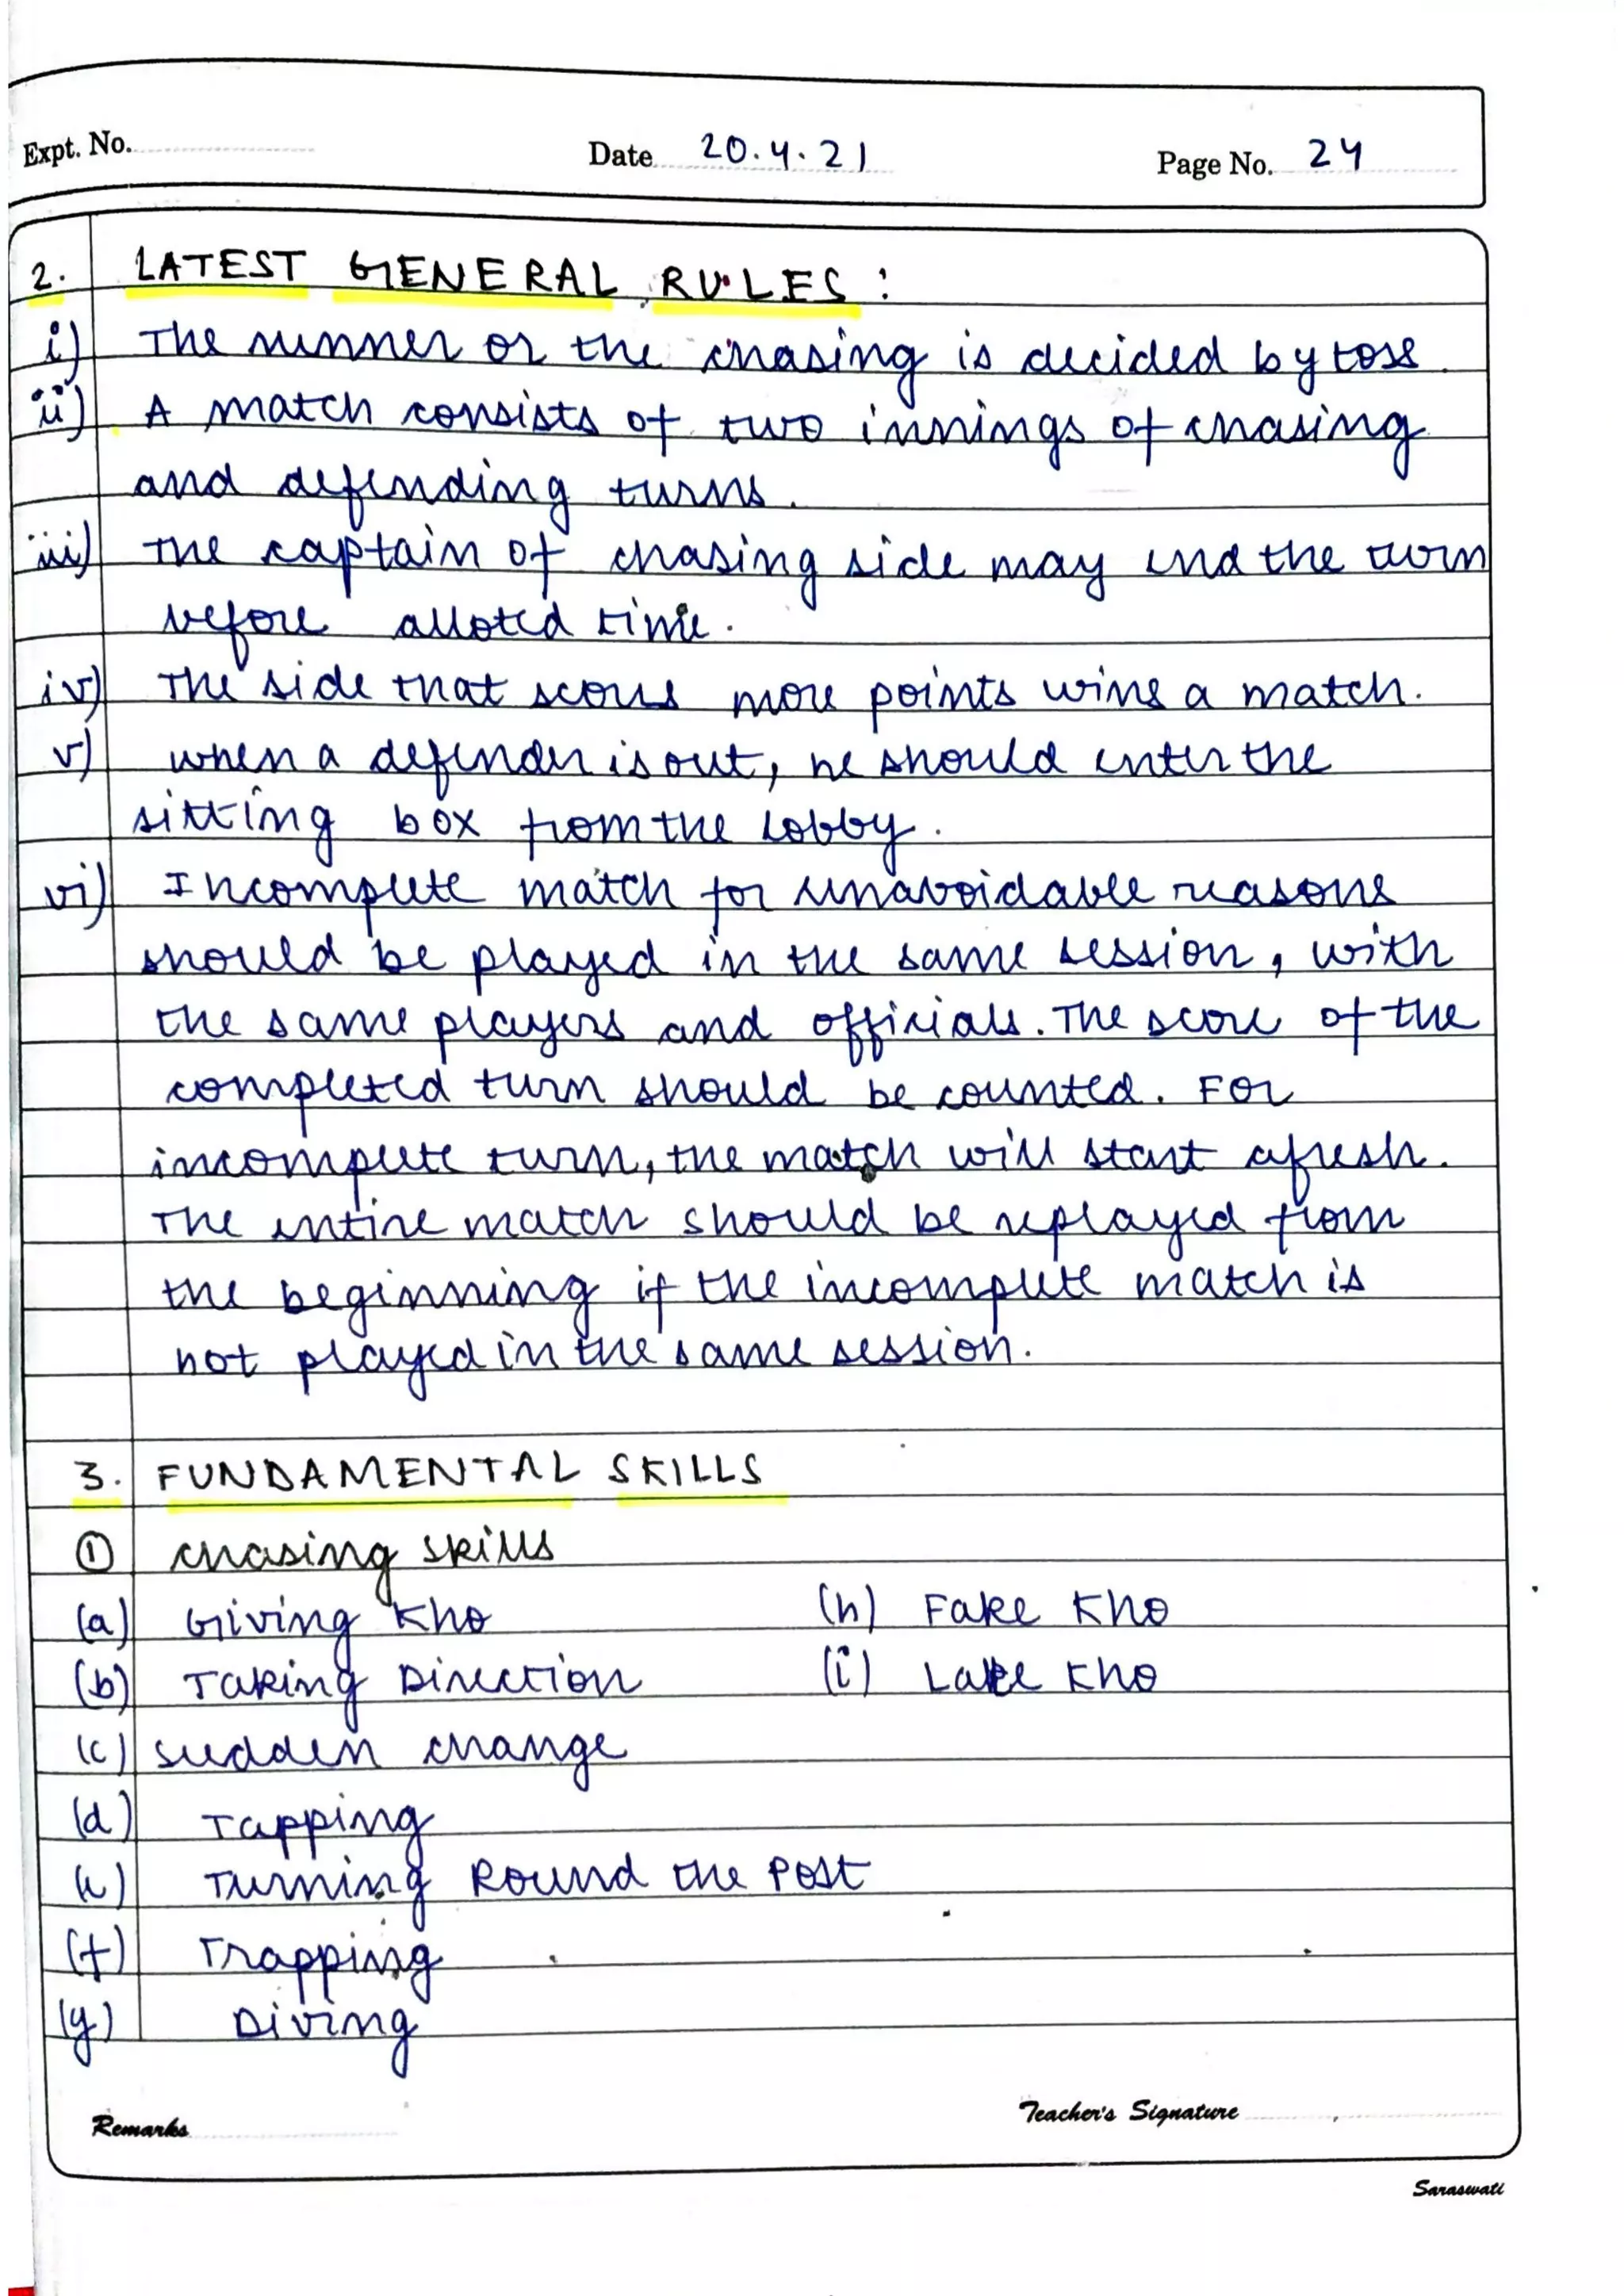 Expt. No.
Date 20.4.21
Page No. 24
2. LATEST GENERAL RULES :
i) The runner or the chasing is decided by toss.
ii) A match consists of two innings of chasing
and defending turns.
iii) The captain of chasing side may end the turn
before alloted time.
iv) The side that scores more points wins a match.
v) when a defender is out, he should enter the
sitting box from the lobby.
vi) Incomplete match for unavoidable reasons
should be played in the same session, with
the same players and officials. The score of the
completed turn should be counted. For
incomplete turn, the match will start afresh.
The entire match should be replayed from
the beginning if the incomplete match is
not played in the same session.
3. FUNDAMENTAL SKILLS
① chasing skills
(a) Giving Kho (h) Fake Kho
(b) Taking Direction (i) Late Kho
(c) sudden change
(d) Tapping
(e) Turning Round the Post
(f) Trapping
(g) Diving
Remarks
Teacher's Signature
Saraswati